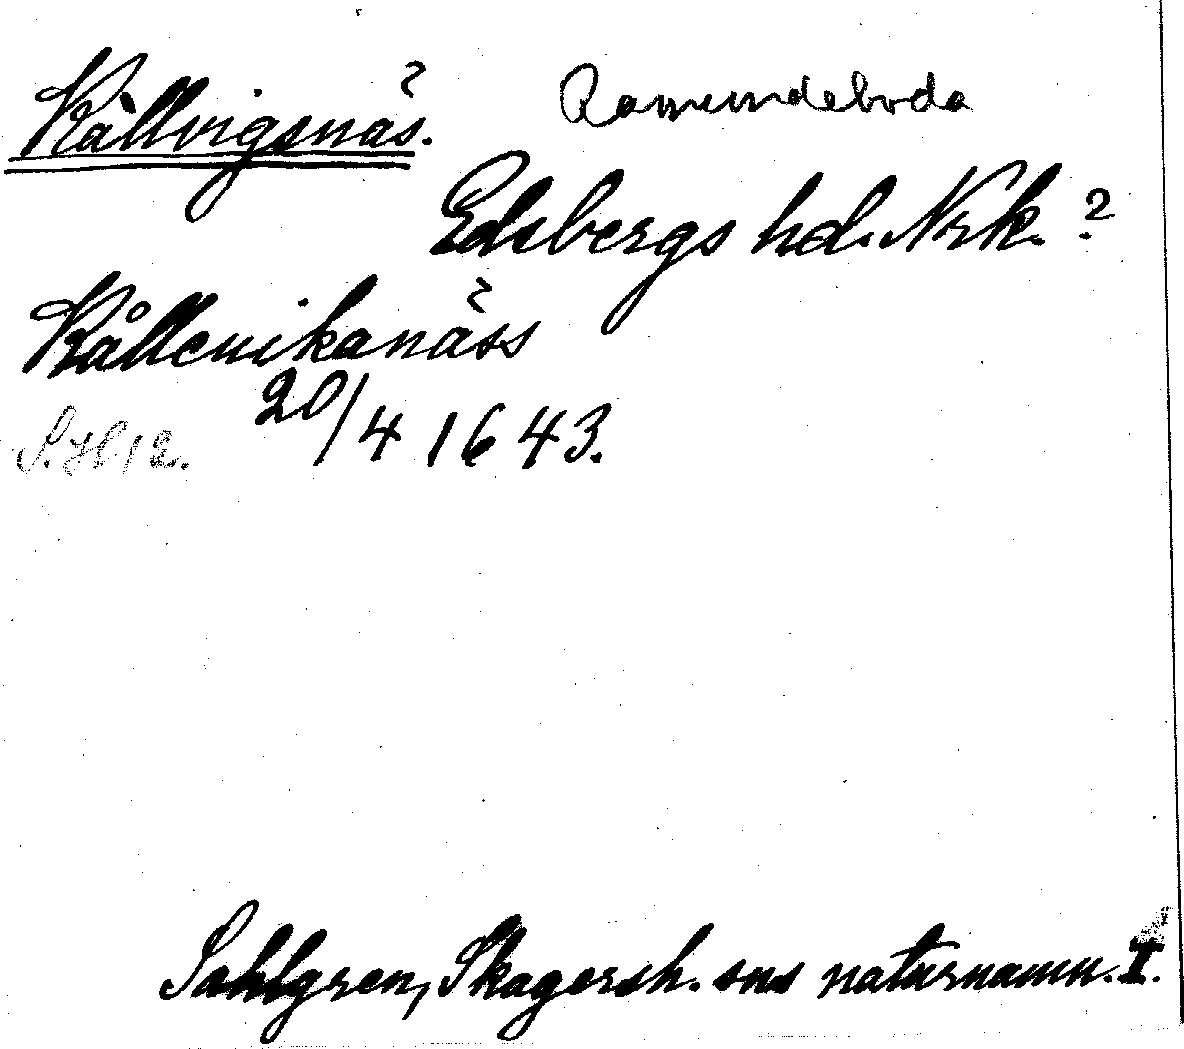 Kållvigsnäs. Ramundeboda
Edsbergs hd. Nrk. ?
Kållevikanäss
20/4 1643.
S. H 12.
Sahlgren, Skagersh. sns naturnamn. I.